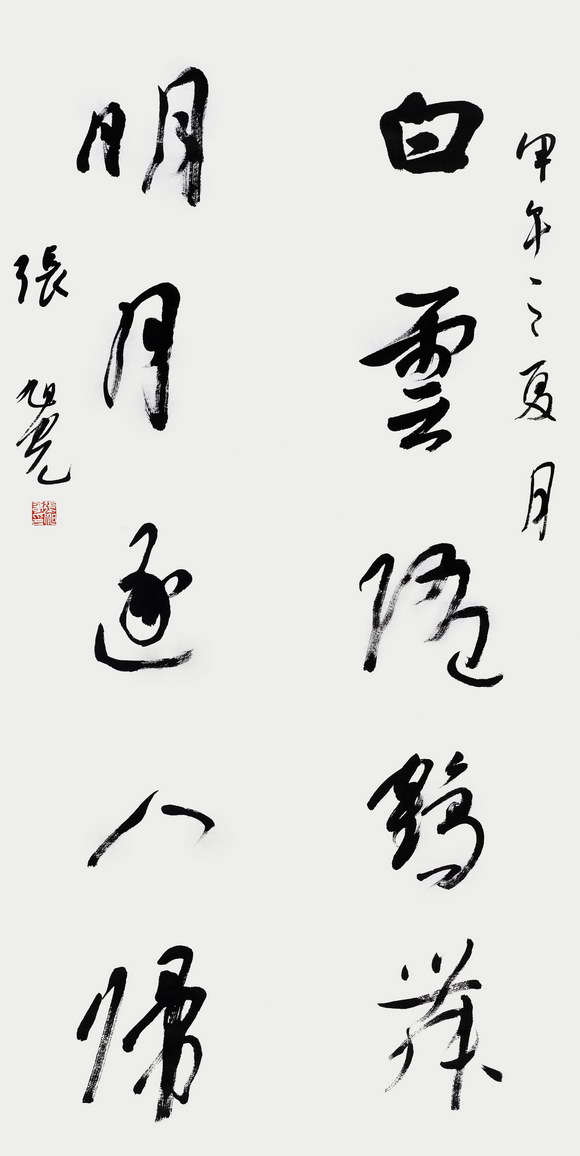 甲午之夏月
白雲隨鶴舞
明月逐人歸
張旭光